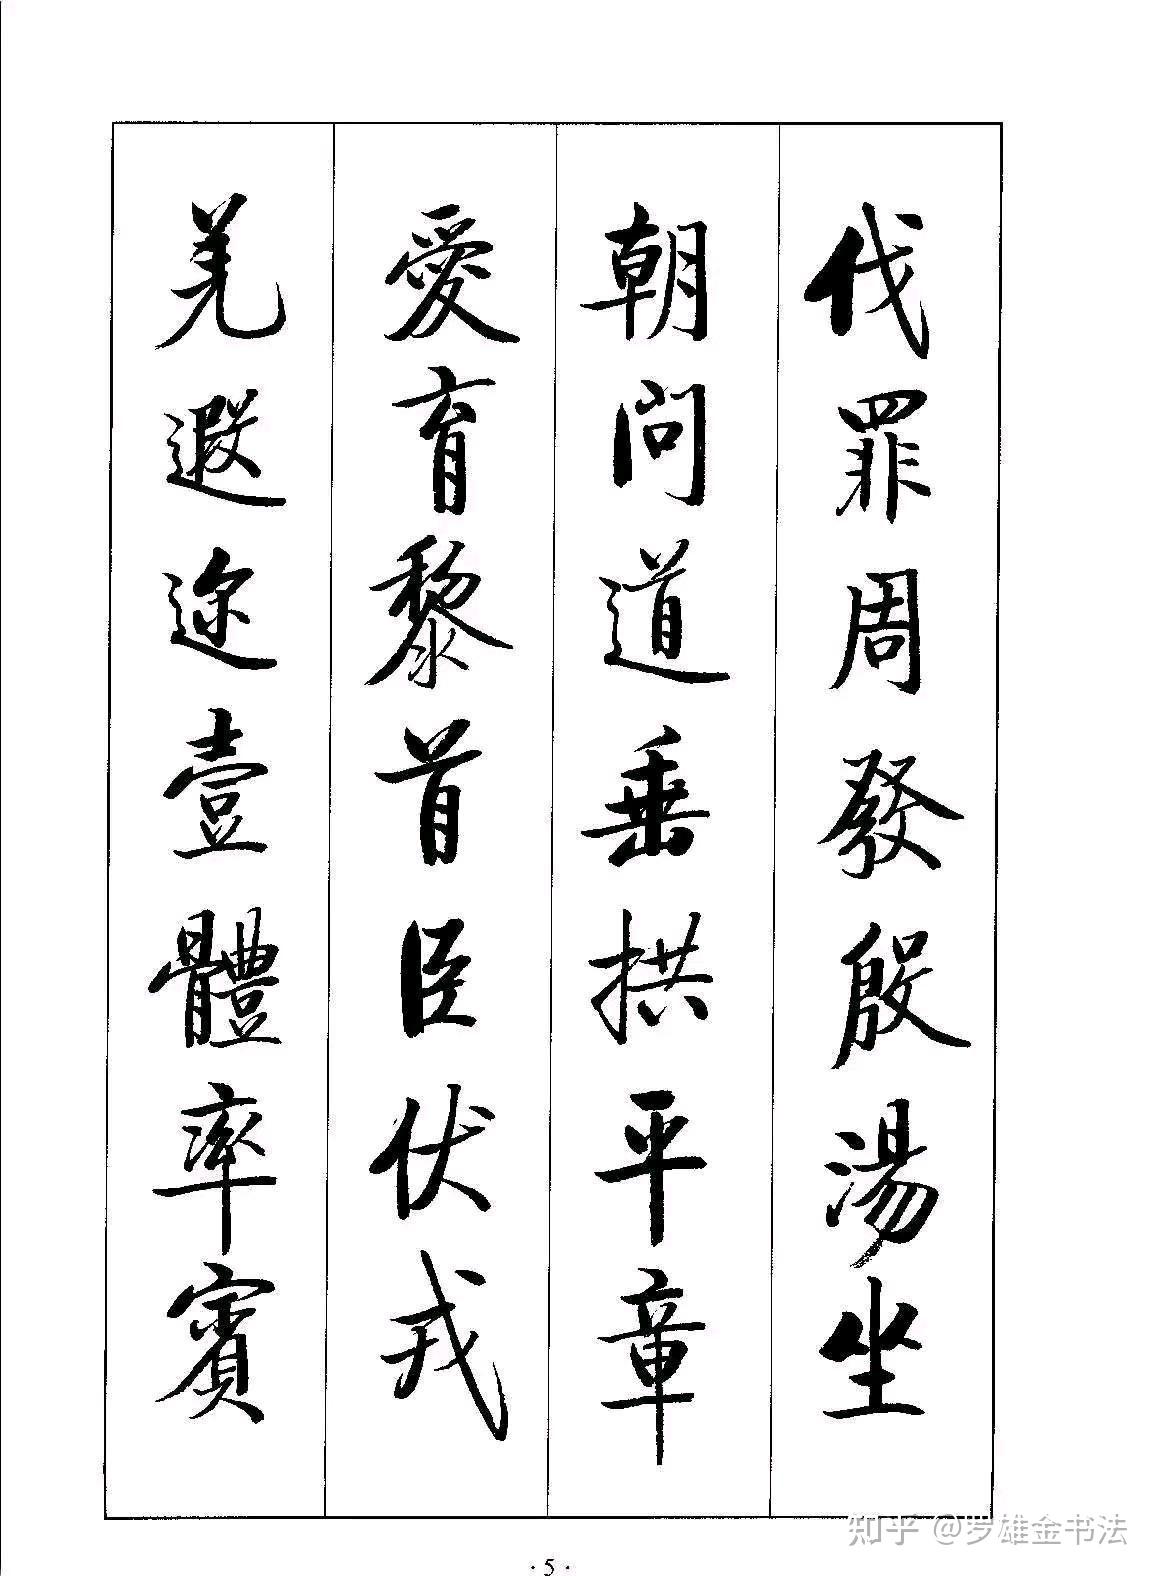 伐罪周發殷湯坐
朝問道垂拱平章
愛育黎首臣伏戎
羌遐迩壹體率賓
知乎 @罗雄金书法
·5·